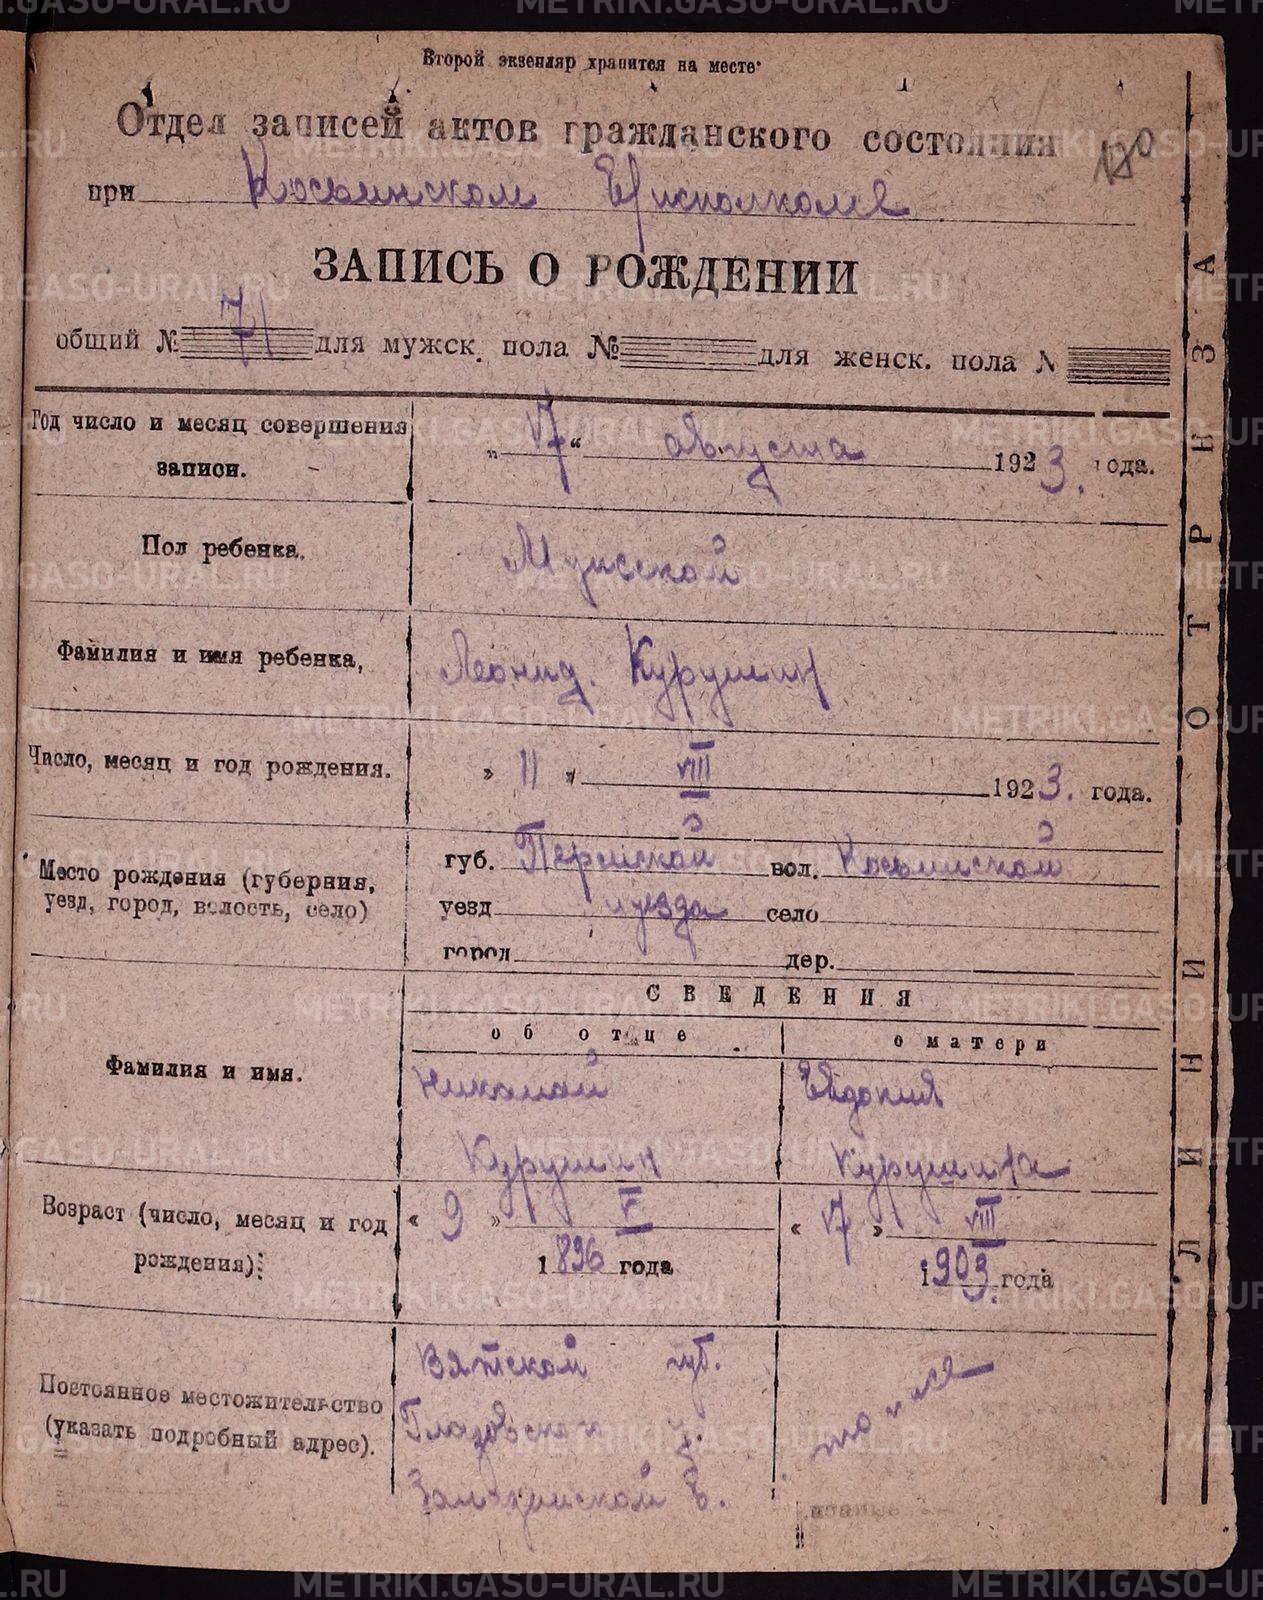 Второй экземпляр хранится на месте
Отдел записей актов гражданского состояния
180
при Косьинском Ерисполкоме
ЗАПИСЬ О РОЖДЕНИИ
общий № 71 для мужск. пола № для женск. пола №
Год число и месяц совершения записи.
„17“ августа 1923. года.
Пол ребенка.
Мужской
Фамилия и имя ребенка,
Леонид. Курушин
Число, месяц и год рождения.
„ 11 „ VIII 1923. года.
Место рождения (губерния,
уезд, город, волость, село)
губ. Пермской вол. Косьинской
уезд уезда село
город дер.
СВЕДЕНИЯ
об отце
о матери
Фамилия и имя.
Николай
Курушин
Евдокия
Курушина
Возраст (число, месяц и год
рождения):
« 9 » V
1896 года
« 17 » VIII
1903. года
Постоянное местожительство
(указать подробный адрес).
Вятской губ.
Глазовского у.
в.
то же
ЛИНИЯ ОТРЫЗА
METRIKI.GASO-URAL.RU